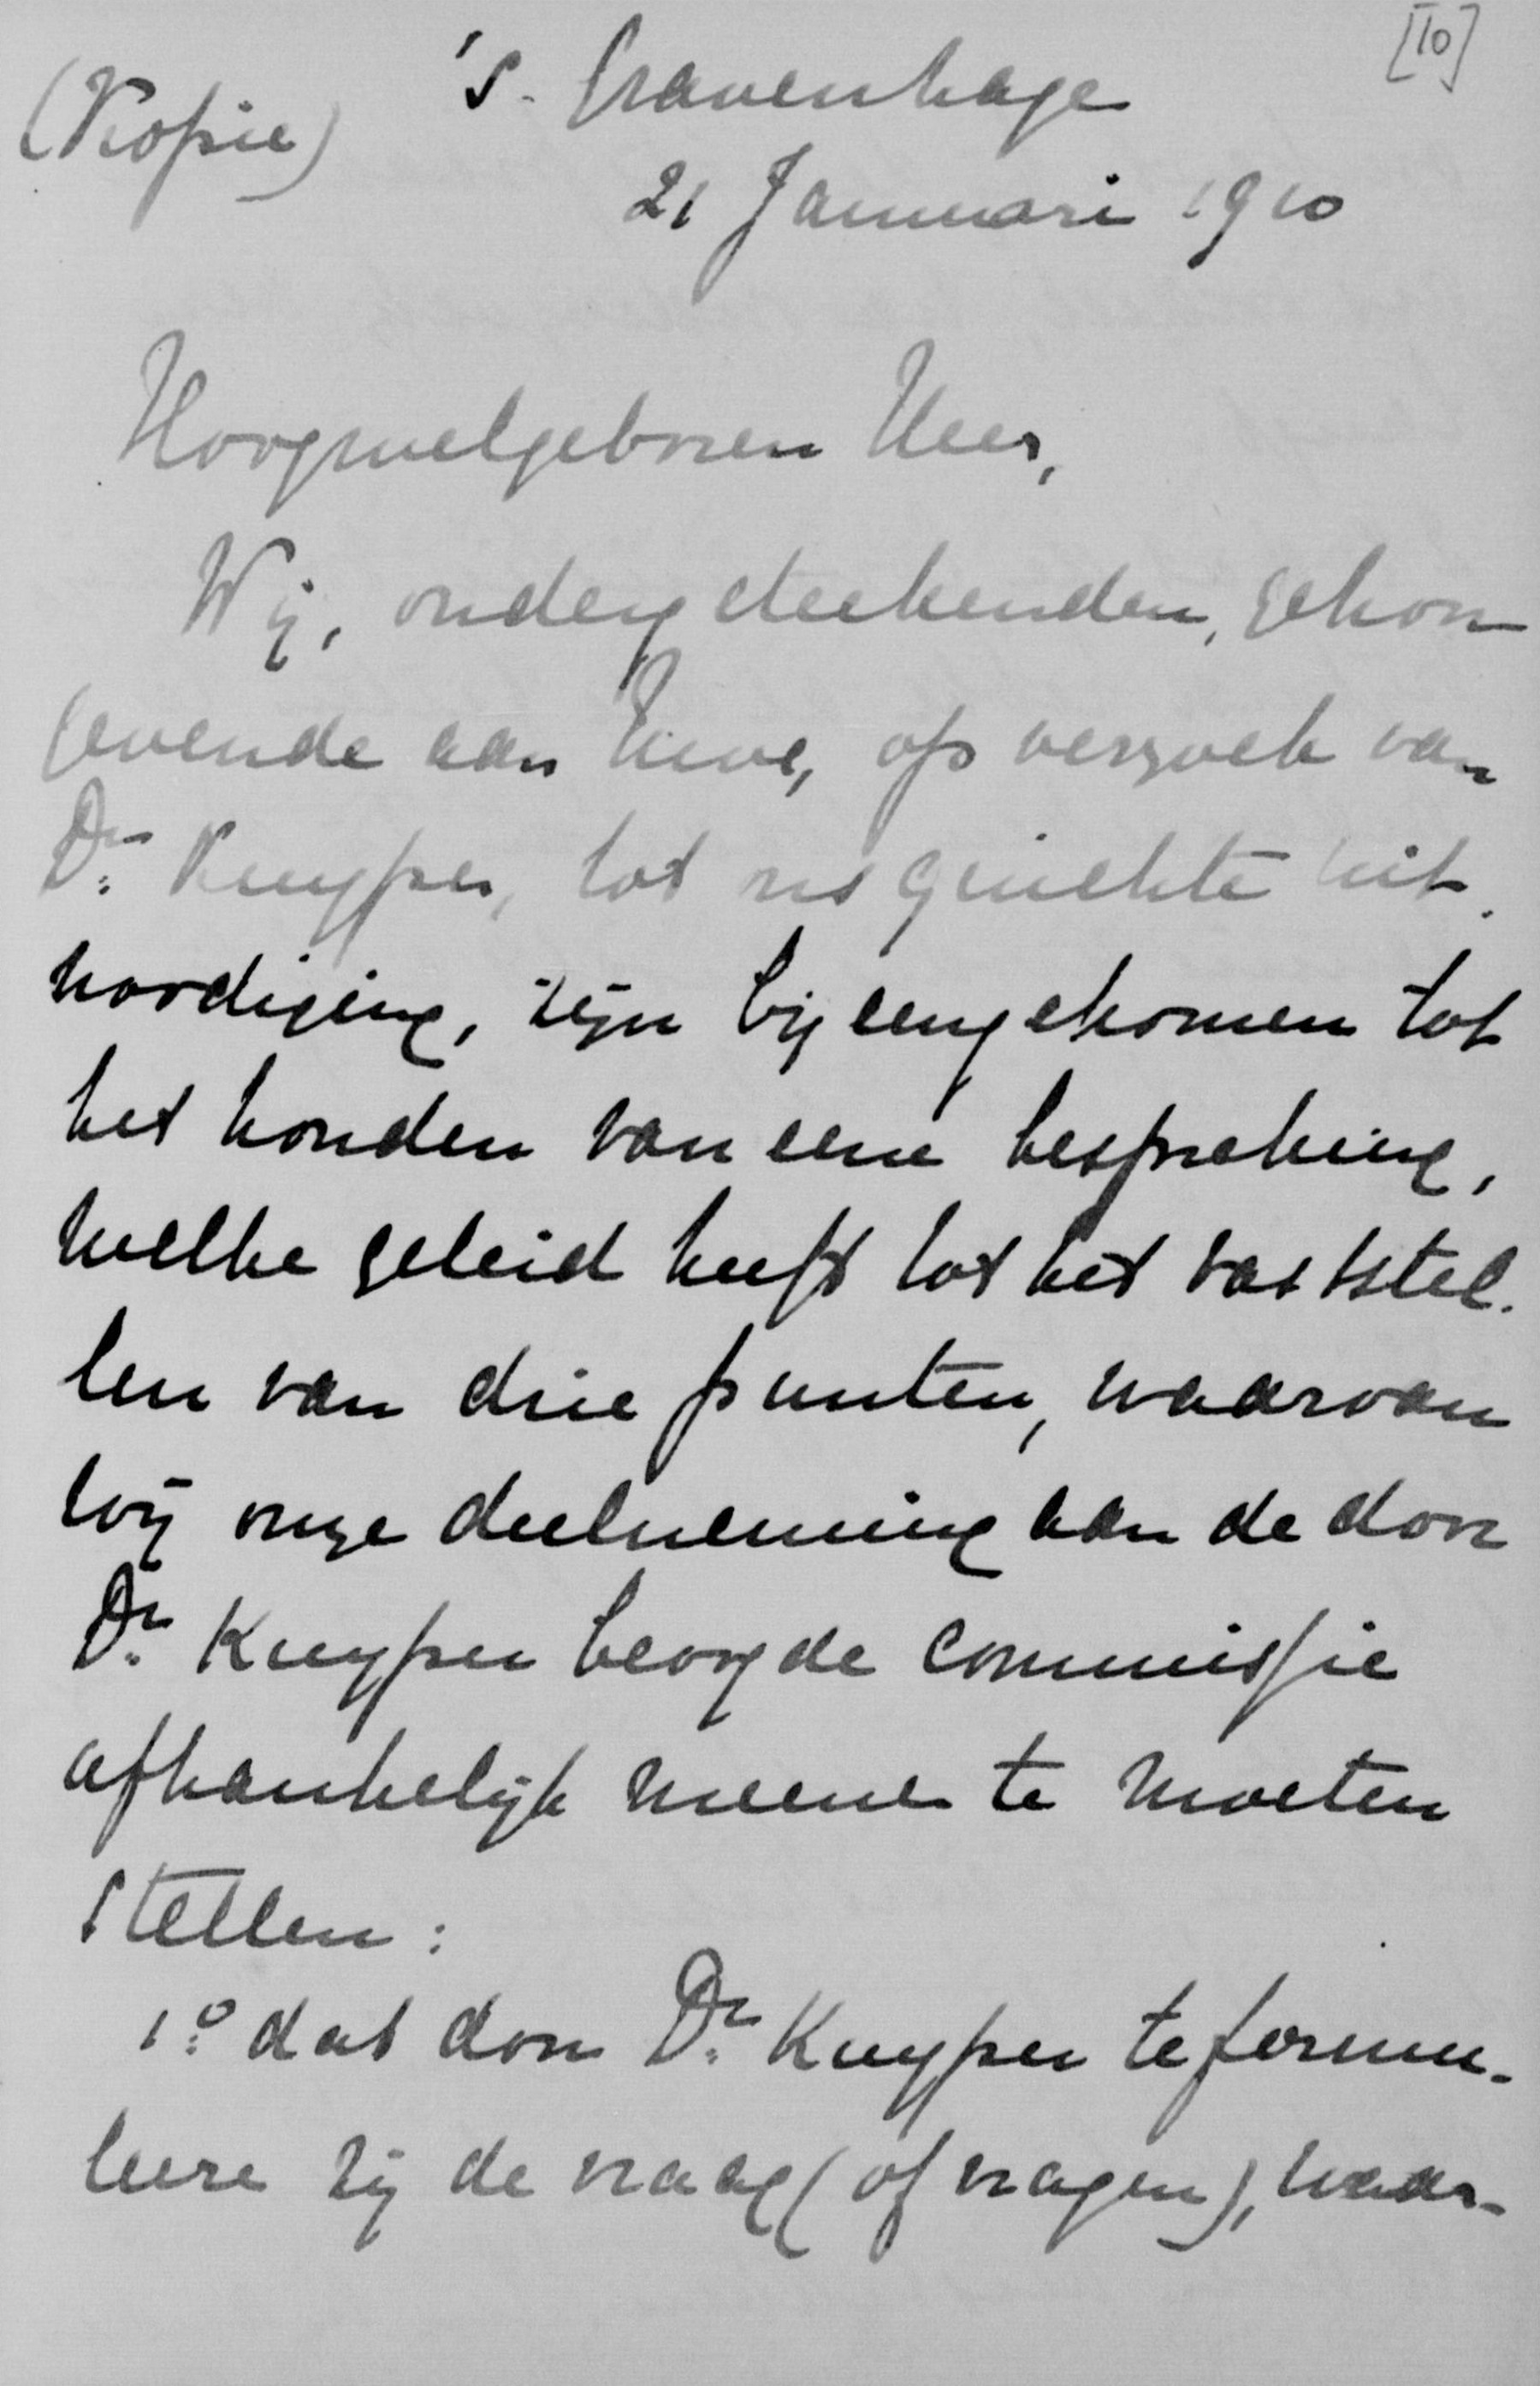 [10]
(Kopie) 's-Gravenhage
21 Januari 1910
Hoogwelgeboren Heer,
Wij, ondergeteekenden, gehoor
gevende aan Uwe, op verzoek van
Dr. Kuyper, tot ons gerichte uit-
noodiging, zijn bijeengekomen tot
het houden van eene bespreking,
welke geleid heeft tot het vaststel-
len van drie punten, waarvan
wij onze deelneming aan de door
Dr. Kuyper beoogde commissie
afhankelijk meenen te moeten
stellen:
1o. dat door Dr. Kuyper te formu-
leere zij de vraag (of vragen), waar-